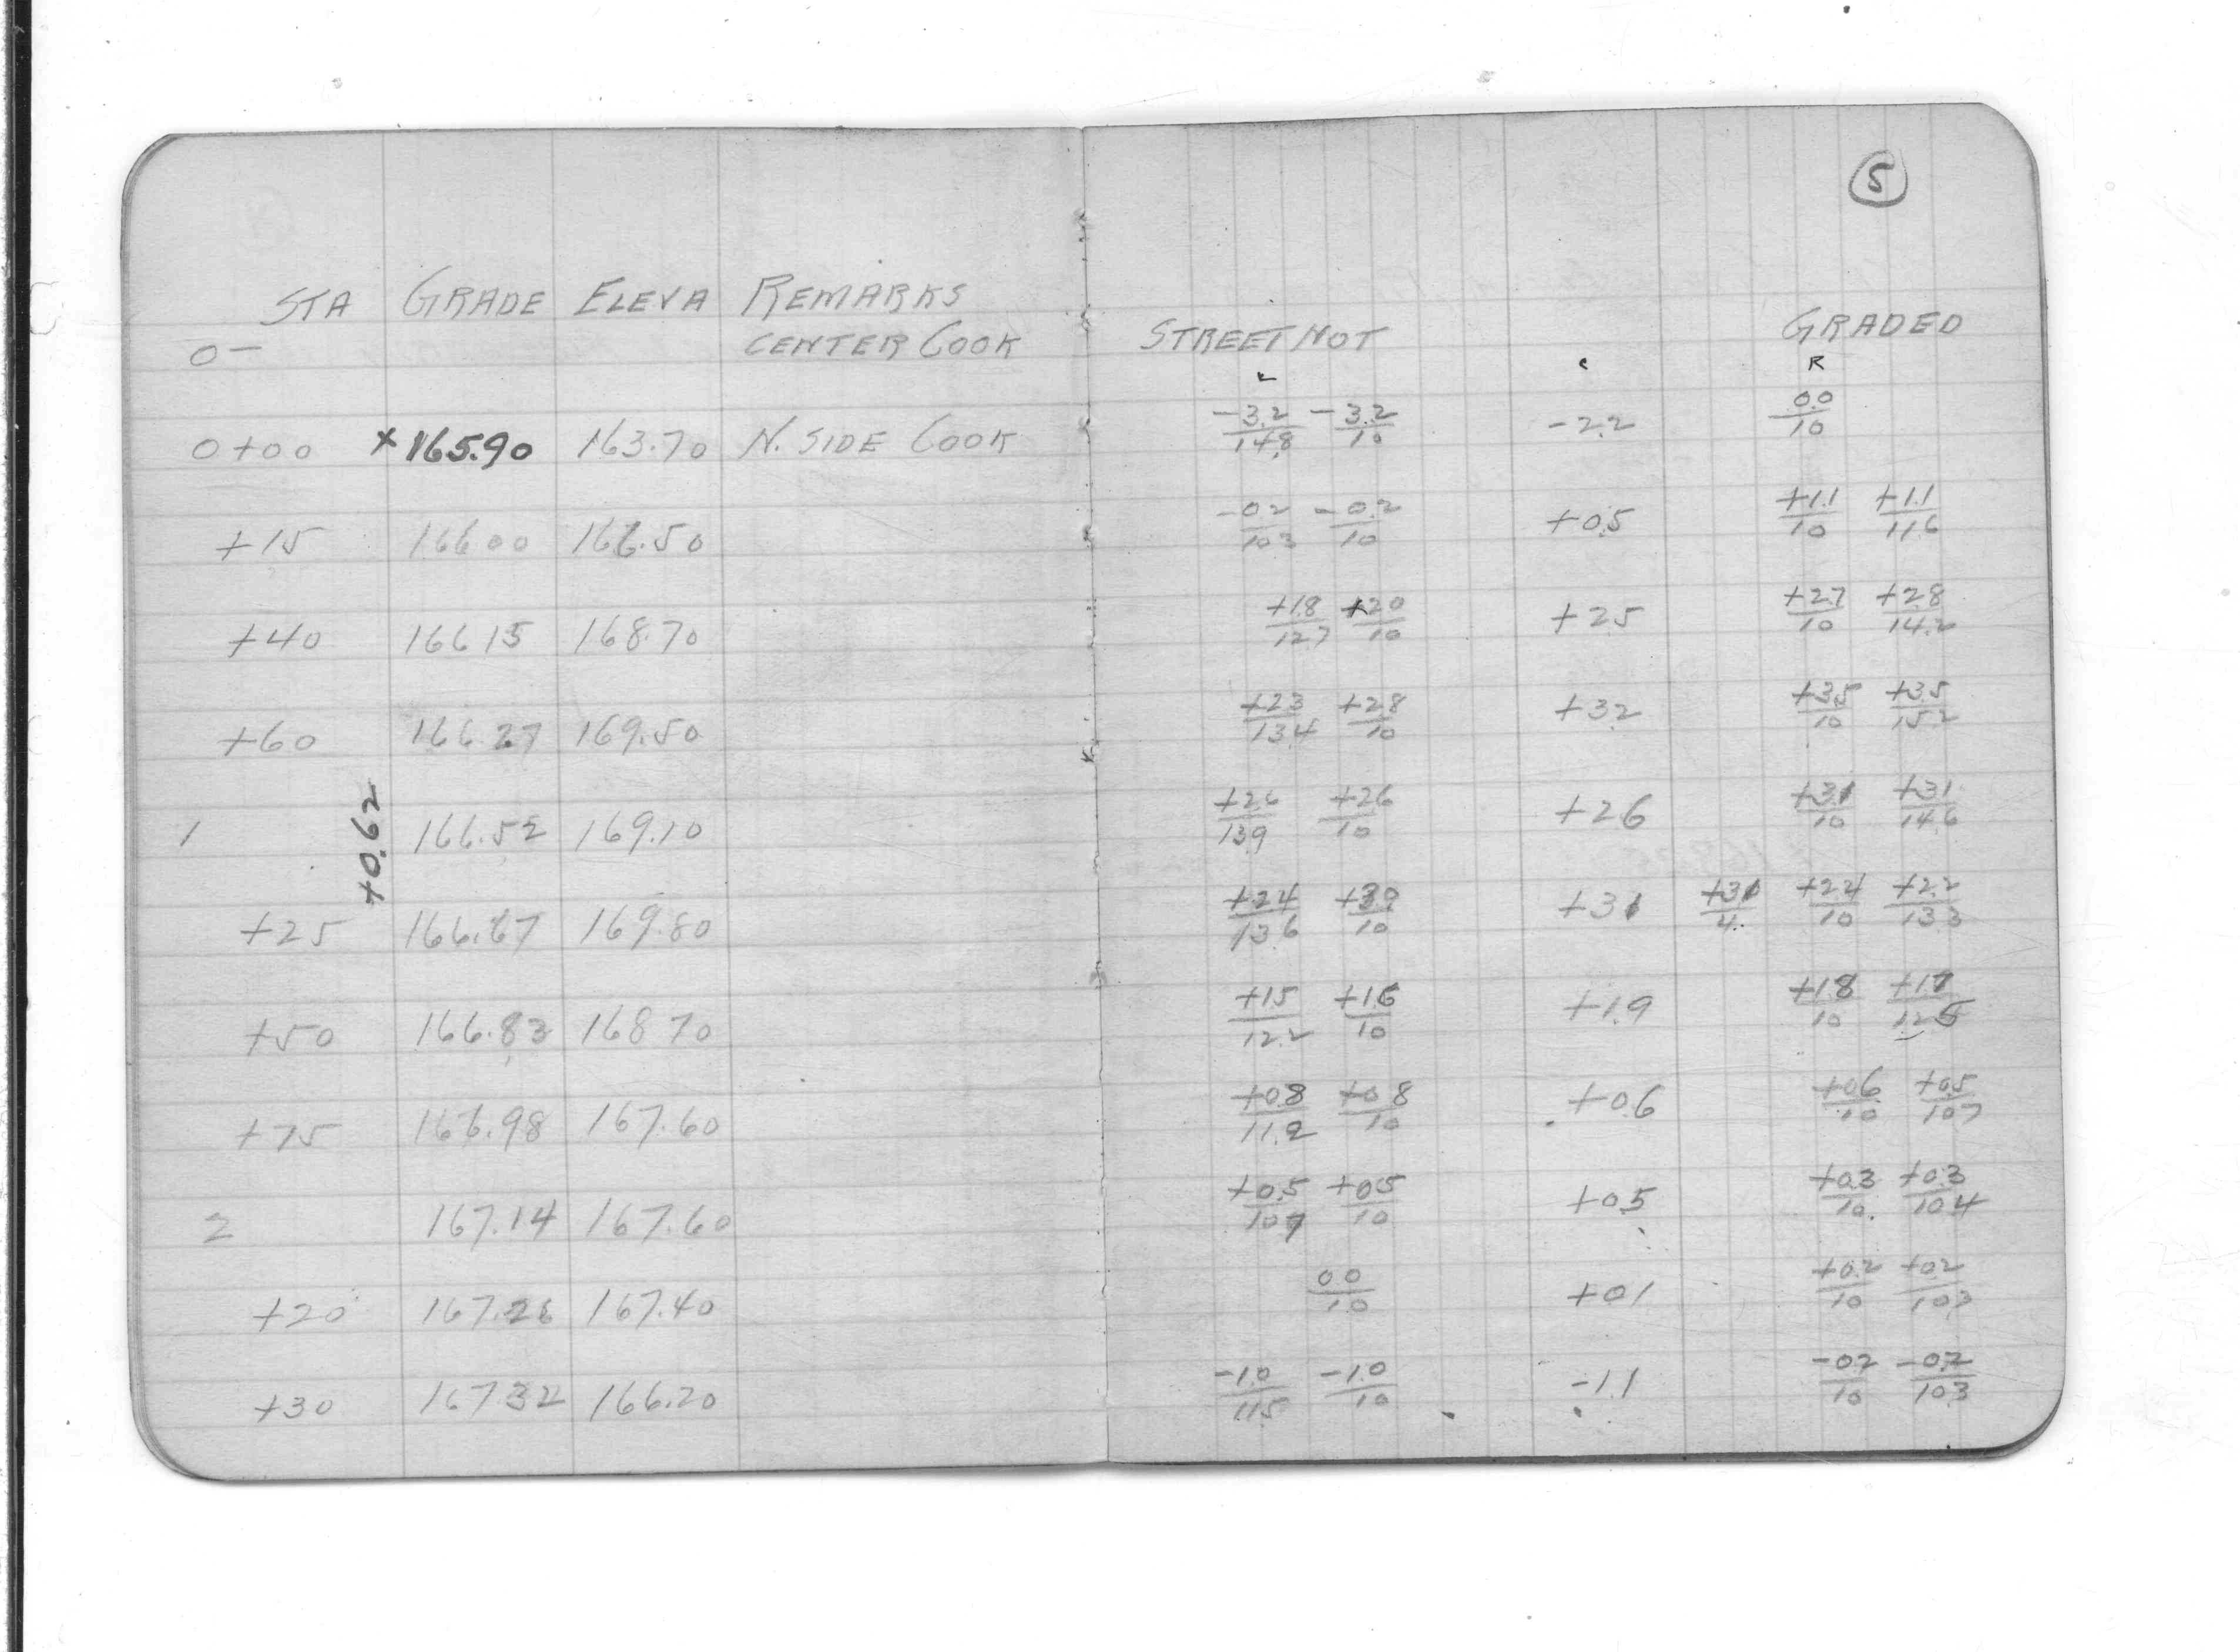 5
STA GRADE ELEVA REMARKS
0— CENTER COOK STREET NOT GRADED
L C R
0+00 x165.90 163.70 N. SIDE COOK -3.2/14.8 -3.2/10 -2.2 0.0/10
+15 166 00 166.50 -0.2/10.3 -0.2/10 +0.5 +1.1/10 +1.1/11.6
+40 166 15 168.70 +1.8/12.7 +2.0/10 +2.5 +2.7/10 +2.8/14.2
+60 166.27 169.50 +2.3/13.4 +2.8/10 +3.2 +3.5/10 +3.5/15.2
+0.62
1 166.52 169.10 +2.6/13.9 +2.6/10 +2.6 +3.1/10 +3.1/14.6
+25 166.67 169.80 +2.4/13.6 +3.0/10 +3.1 +3.1/4. +2.4/10 +2.2/13.3
+50 166.83 168 70 +1.5/12.2 +1.6/10 +1.9 +1.8/10 +1.7/12.5
+75 166.98 167.60 +0.8/11.2 +0.8/10 +0.6 +0.6/10 +0.5/10.7
2 167.14 167.60 +0.5/10.7 +0.5/10 +0.5 +0.3/10 +0.3/10.4
+20 167.26 167.40 0.0/10 +0.1 +0.2/10 +0.2/10.3
+30 167 32 166.20 -1.0/11.5 -1.0/10 -1.1 -0.2/10 -0.2/10.3